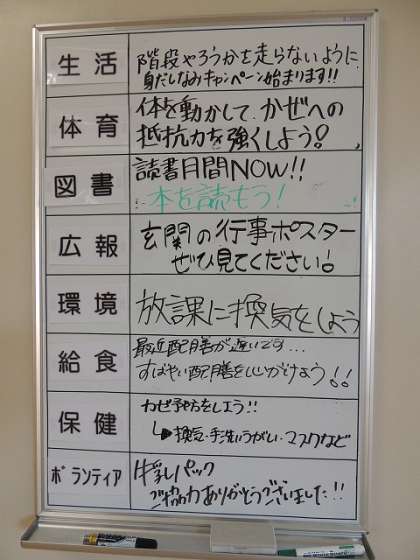 生活
階段やろうかを走らないように
身だしなみキャンペーン始まります!!
体育
体を動かして、かぜへの
抵抗力を強くしよう!
図書
読書月間NOW!!
本を読もう!
広報
玄関の行事ポスター
ぜひ見てください!
環境
放課に換気をしよう
給食
最近配膳が遅いです...
すばやい配膳を心がけよう!!
保健
カゼ予防をしよう!!
↳換気・手洗いうがい・マスクなど
ボランティア
牛乳パック
ご協力ありがとうございました!!